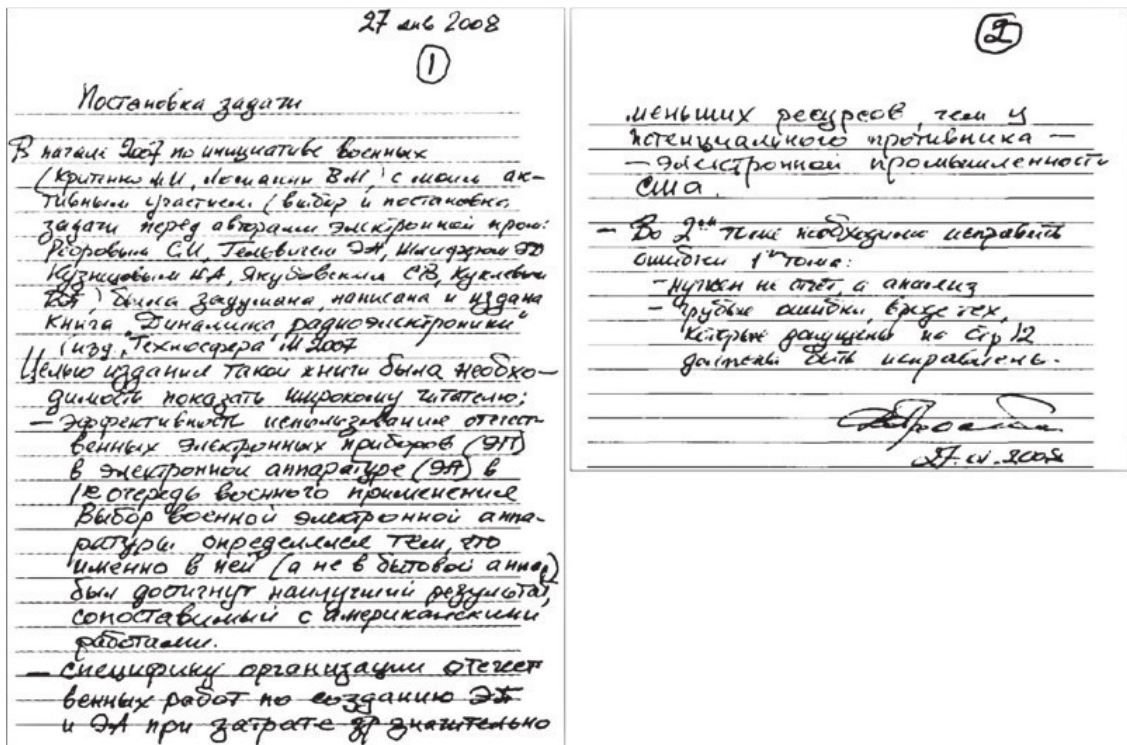 27 янв 2008
1
Постановка задачи
В начале 2007 по инициативе военных
(Критенко М.И., Ломакин В.М.) с моим ак-
тивным участием (выбор и постановка
задачи перед авторами электронной пром:
Ребровым С.И., Гельвичем ЭА, Шмидтом
Кузнецовым НА, Якубовским СВ, Куклевым
) была задумана, написана и издана
книга "Динамика радиоэлектроники"
(изд. "Техносфера" М 2007
Целью издания такой книги была необхо-
димость показать широкому читателю:
— эффективность использования отечест-
венных электронных приборов (ЭП)
в электронной аппаратуре (ЭА) в
1ю очередь военного применения
Выбор военной электронной аппа-
ратуры определялся тем, что
именно в ней (а не в бытовой аппар)
был достигнут наилучший результат,
сопоставимый с американскими
работами.
— специфику организации отечест
венных работ по созданию ЭП
и ЭА при затрате значительно
2
меньших ресурсов, чем у
потенциального противника —
— электронной промышленности
США.
— Во 2ом томе необходимо исправить
ошибки 1го тома:
— нужен не отчёт, а анализ
— грубые ошибки, вроде тех,
которые допущены на стр 12
должны быть исправлены.
2008